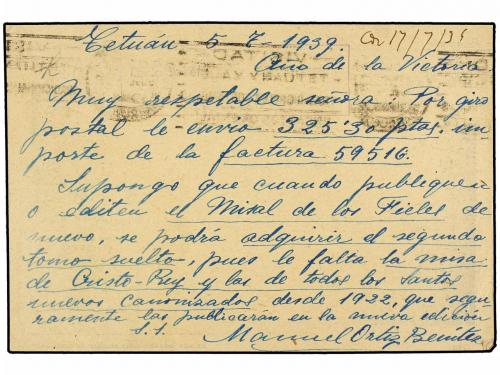 Tetuán 5-7-1939. Con 17/7/39
Año de la Victoria
Muy respetable señora Por giro
postal le envio 325'30 ptas. im
porte de la factura 59516.
Supongo que cuando publiquen
o editen el Misal de los Fieles de
nuevo, se podrá adquirir el segundo
tomo suelto, pues le falta la misa
de Cristo-Rey y las de todos los Santos
nuevos canonizados desde 1922, que segu
ramente las publicarán en la nueva edición
S.S. Manuel Ortiz Benítez